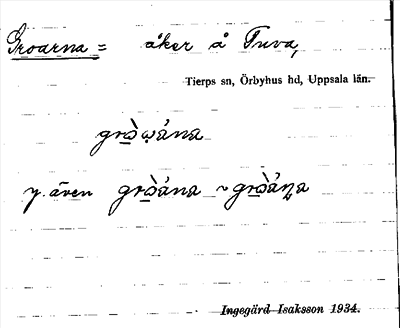 Groarna = åker å Tuva,
Tierps sn, Örbyhus hd, Uppsala län.
grɷ̀wána
y. även grɷ̀ána ~ grɷ̀áṇa
Ingegärd Isaksson 1934.